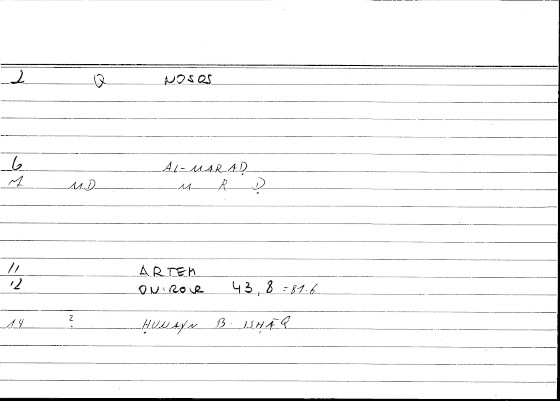 2 Q NOSOS
6 AL-MARAḌ
7 MD M R Ḍ
11 ARTEM
12 43,8 = 81.6
14 ? ḤUNAYN B. ISḤĀQ